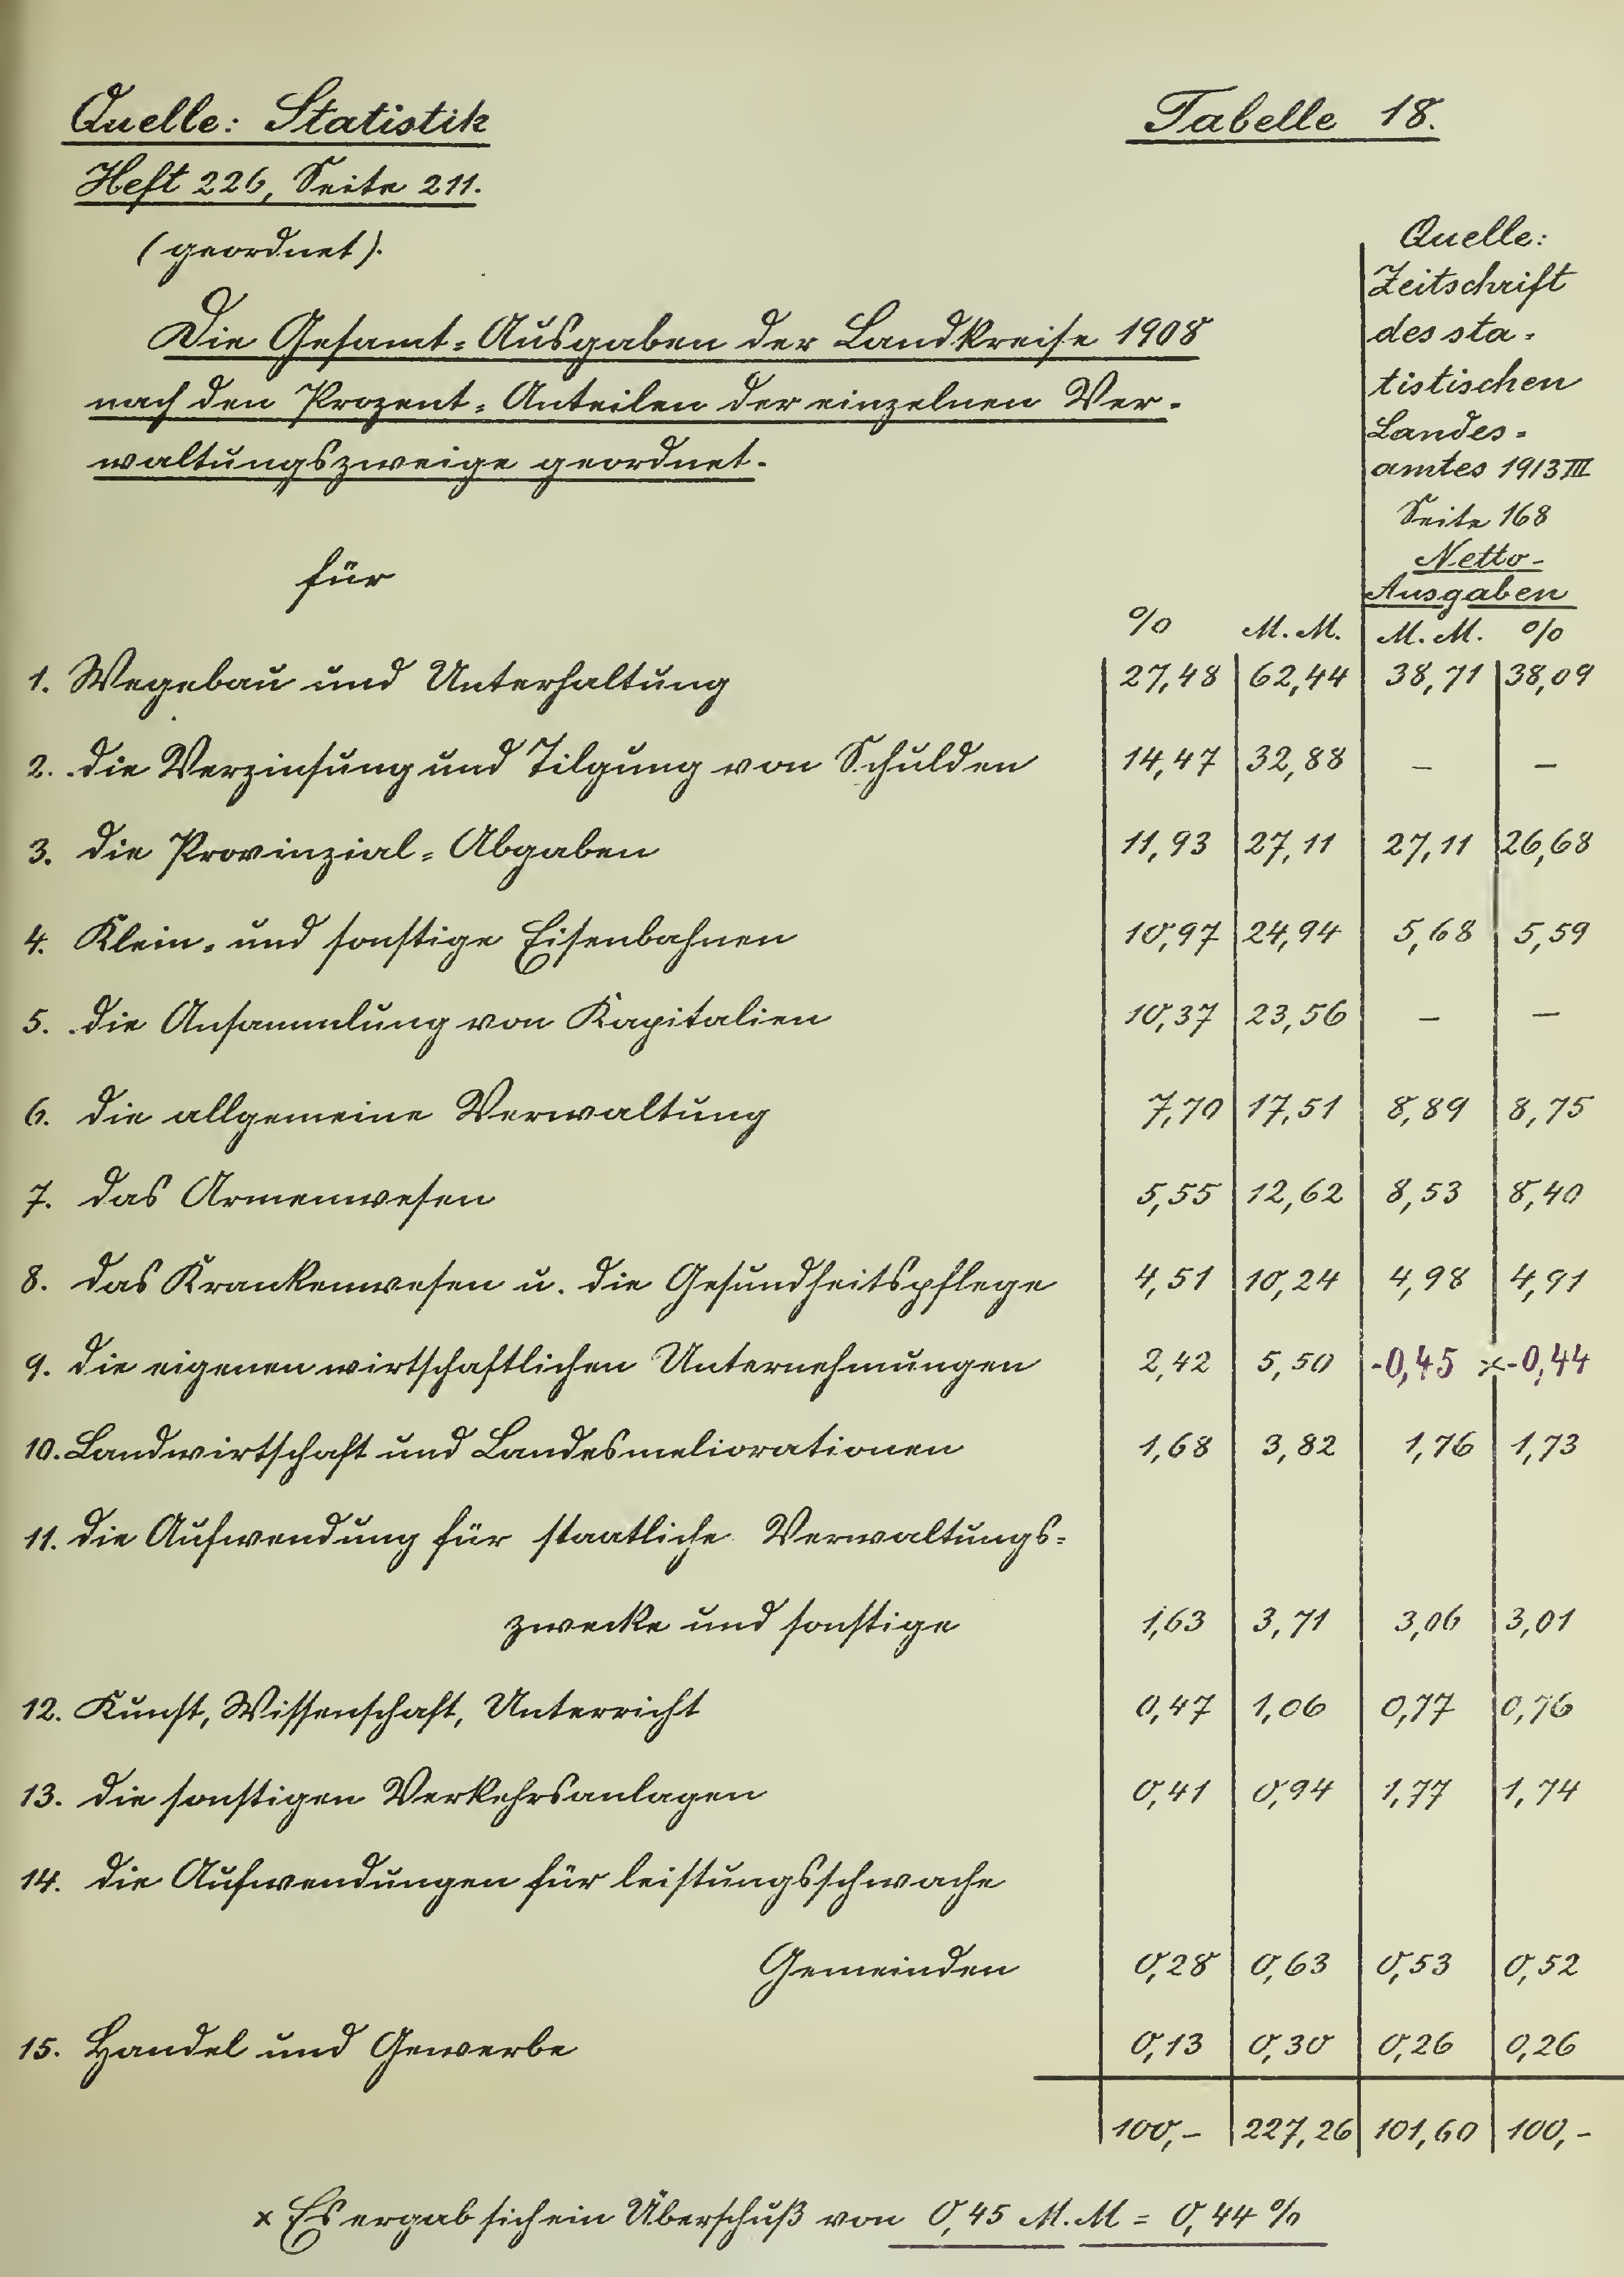 Quelle: Statistik
Heft 226, Seite 211.
(geordnet).
Tabelle 18.
Die Gesamt-Ausgaben der Landkreise 1908
nach den Prozent-Anteilen der einzelnen Ver-
waltungszweige geordnet.
Quelle:
Zeitschrift
des sta-
tistischen
Landes-
amtes 1913 III
Seite 168
Netto-
Ausgaben
für
% M.M. M.M. %
1. Wegebau und Unterhaltung 27,48 62,44 38,71 38,09
2. die Verzinsung und Tilgung von Schulden 14,47 32,88 – –
3. die Provinzial-Abgaben 11,93 27,11 27,11 26,68
4. Klein- und sonstige Eisenbahnen 10,97 24,94 5,68 5,59
5. die Ansammlung von Kapitalien 10,37 23,56 – –
6. die allgemeine Verwaltung 7,70 17,51 8,89 8,75
7. das Armenwesen 5,55 12,62 8,53 8,40
8. das Krankenwesen u. die Gesundheitspflege 4,51 10,24 4,98 4,91
9. die eigenen wirtschaftlichen Unternehmungen 2,42 5,50 -0,45 x -0,44
10. Landwirtschaft und Landesmeliorationen 1,68 3,82 1,76 1,73
11. die Aufwendung für staatliche Verwaltungs-
zwecke und sonstige 1,63 3,71 3,06 3,01
12. Kunst, Wissenschaft, Unterricht 0,47 1,06 0,77 0,76
13. die sonstigen Verkehrsanlagen 0,41 0,94 1,77 1,74
14. die Aufwendungen für leistungsschwache
Gemeinden 0,28 0,63 0,53 0,52
15. Handel und Gewerbe 0,13 0,30 0,26 0,26
100,- 227,26 101,60 100,-
x Es ergab sich ein Überschuß von 0,45 M.M = 0,44 %